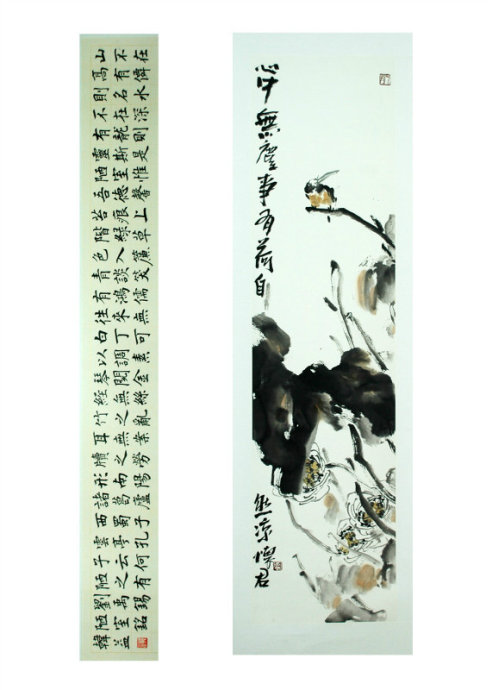 山不在
高有僊
則名水
不在深
有龍則
靈斯是
陋室惟
吾德馨
苔痕上
階綠草
色入簾
青談笑
有鴻儒
往來無
白丁可
以調素
琴閱金
經無絲
竹之亂
耳無案
牘之勞
形南陽
諸葛廬
西蜀子
雲亭孔
子云何
陋之有
劉禹錫
陋室銘
韓益
心中無塵事有荷自
然涼燦君